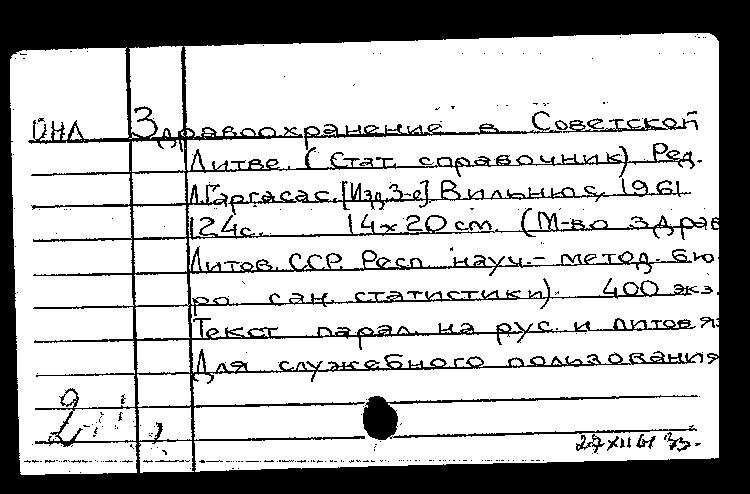 ОНЛ Здравоохранение в Советской
Литве. (Стат. справочник). Ред.
Л.Гаргасас. [Изд. 3-е] Вильнюс, 1961.
124с. 14х20см. (М-во здрав
Литов. ССР. Респ. науч.- метод. бю-
ро сан. статистики). 400 экз.
Текст парал. на рус. и литов. яз
Для служебного пользования
2
27 XII 61